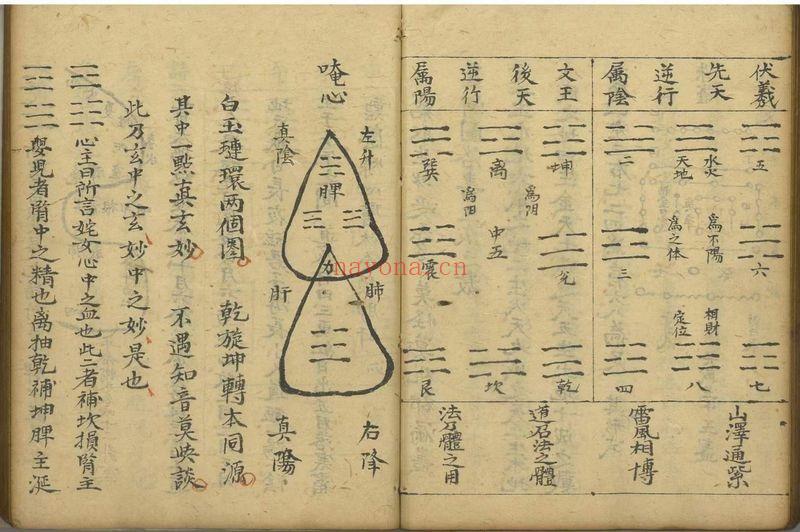 伏羲
先天
逆行
属陰
五
六
七
水火
爲不陽
相財
天地
爲之体
定位
八
二
三
四
山澤通紫
雷風相博
文王
後天
逆行
属陽
坤
兌
乾
爲阴
離
中五
坎
爲阳
巽
震
艮
道名法之體
法乃體之用
左升
肺
右降
唵心
脾
力
真陰
肝
真陽
白玉璉環兩個圏
乾旋坤轉本同源
其中一點真玄妙
不遇知音莫與談
此乃玄中之玄妙中之妙是也
心主曰所言姹女心中之血也此二者補坎損腎主
嬰児者腎中之精也离抽乾補坤脾主涎
nayona.cn